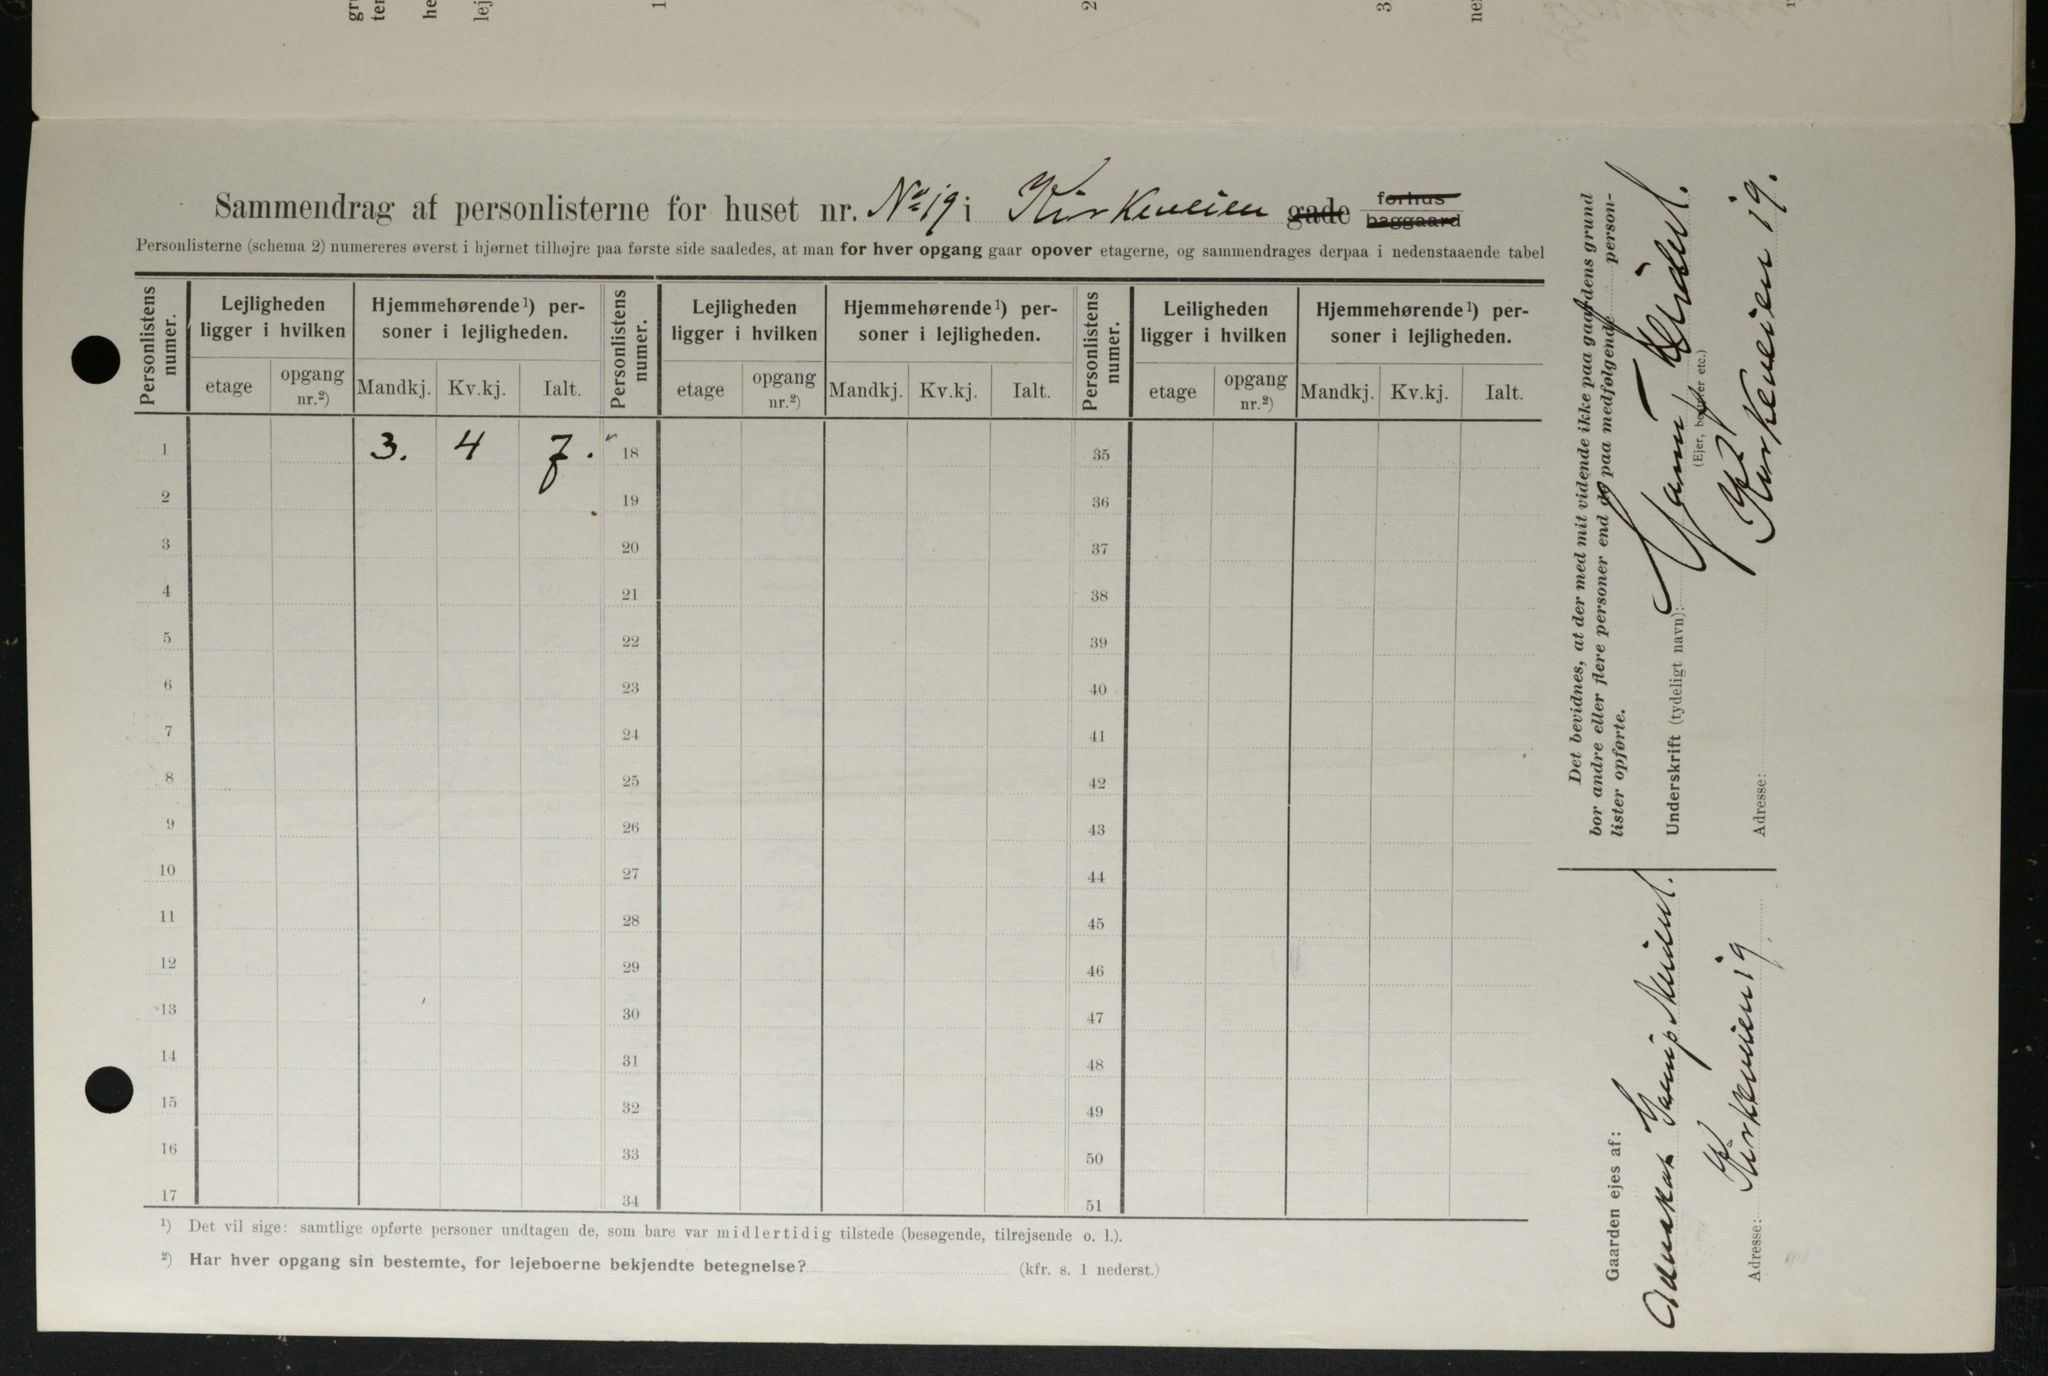 Sammendrag af personlisterne for huset nr. No 19 i Kirkeveien gade forhus baggaard
Personlisterne (schema 2) numereres øverst i hjørnet tilhøjre paa første side saaledes, at man for hver opgang gaar opover etagerne, og sammendrages derpaa i nedenstaaende tabel
Personlistens numer. Lejligheden ligger i hvilken Hjemmehørende¹) personer i lejligheden. Personlistens numer. Lejligheden ligger i hvilken Hjemmehørende¹) personer i lejligheden. Personlistens numer. Leiligheden ligger i hvilken Hjemmehørende¹) personer i lejligheden.
etage opgang nr.²) Mandkj. Kv.kj. Ialt. etage opgang nr.²) Mandkj. Kv.kj. Ialt. etage opgang nr.²) Mandkj. Kv.kj. Ialt.
1 3. 4 7. 18 35
2 19 36
3 20 37
4 21 38
5 22 39
6 23 40
7 24 41
8 25 42
9 26 43
10 27 44
11 28 45
12 29 46
13 30 47
14 31 48
15 32 49
16 33 50
17 34 51
¹) Det vil sige: samtlige opførte personer undtagen de, som bare var midlertidig tilstede (besøgende, tilrejsende o. l.).
²) Har hver opgang sin bestemte, for lejeboerne bekjendte betegnelse? (kfr. s. 1 nederst.)
Det bevidnes, at der med mit vidende ikke paa gaardens grund
bor andre eller flere personer end de paa medfølgende person-
lister opførte.
Underskrift (tydeligt navn):
(Ejer, bestyrer etc.)
Adresse: Kirkeveien 19.
Gaarden ejes af:
Adresse: Kirkeveien 19